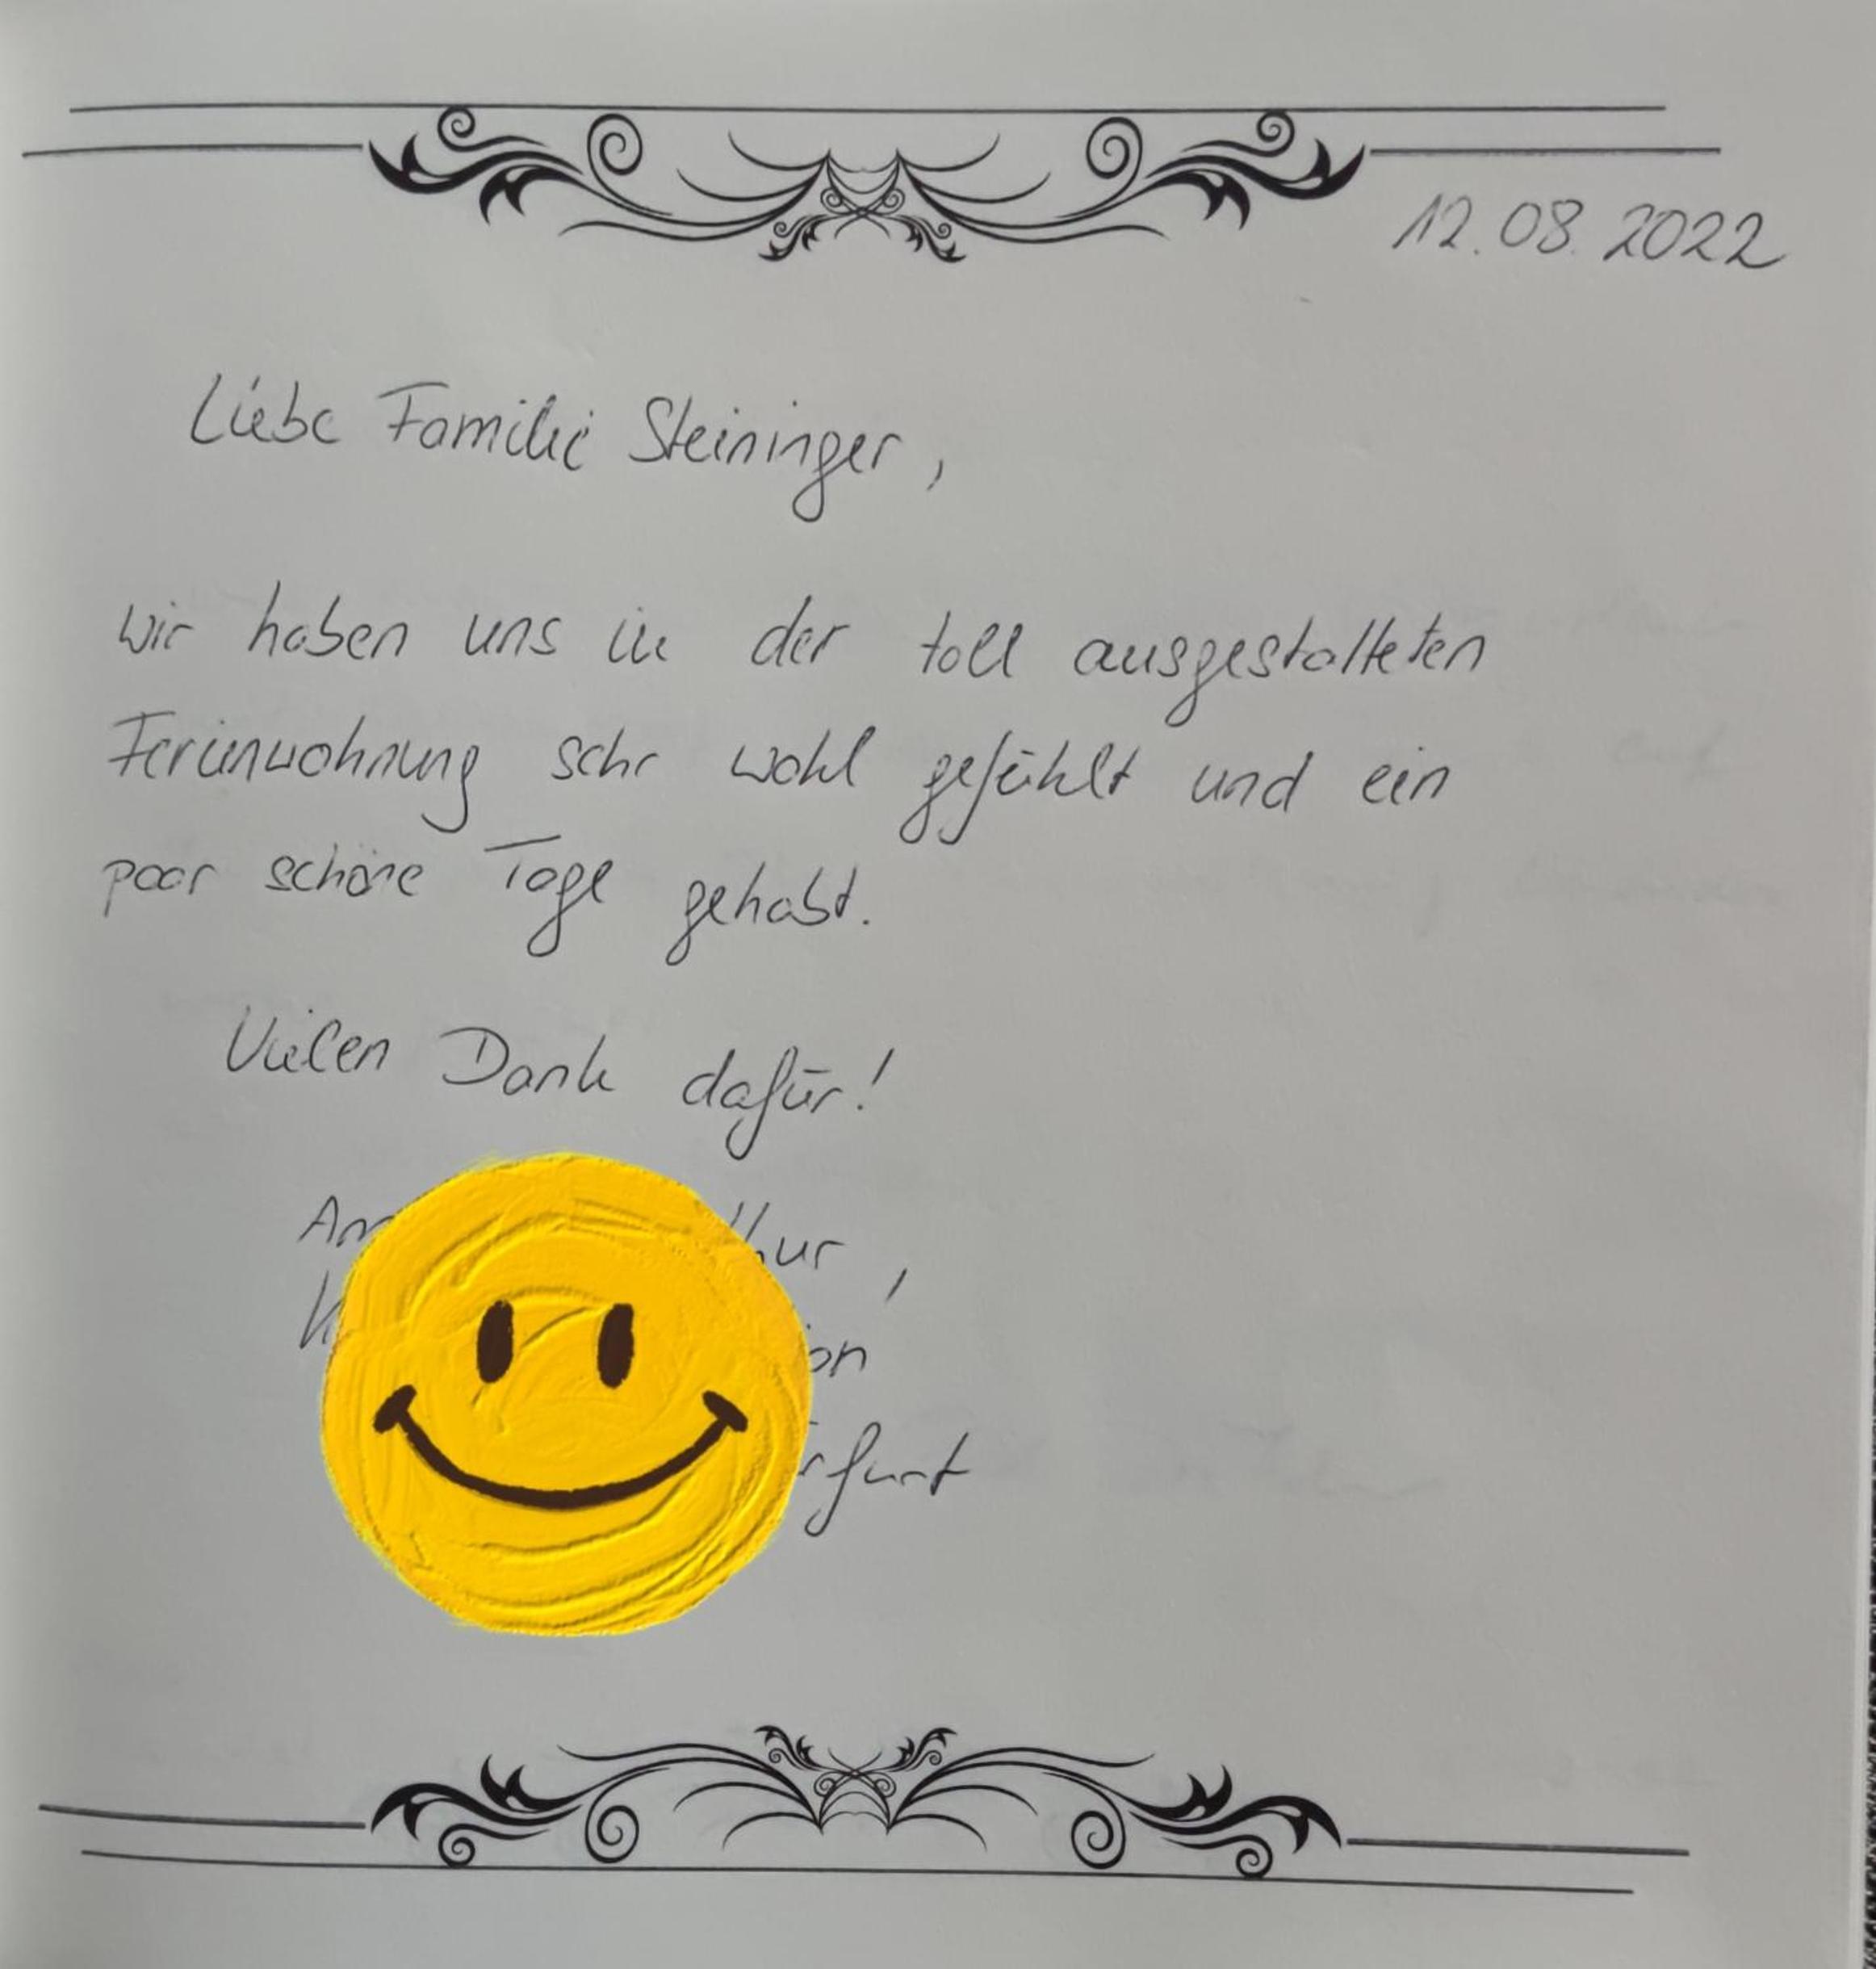 12.08.2022
Liebe Familie Steininger,
wir haben uns in der toll ausgestalteten
Ferienwohnung sehr wohl gefühlt und ein
paar schöne Tage gehabt.
Vielen Dank dafür!